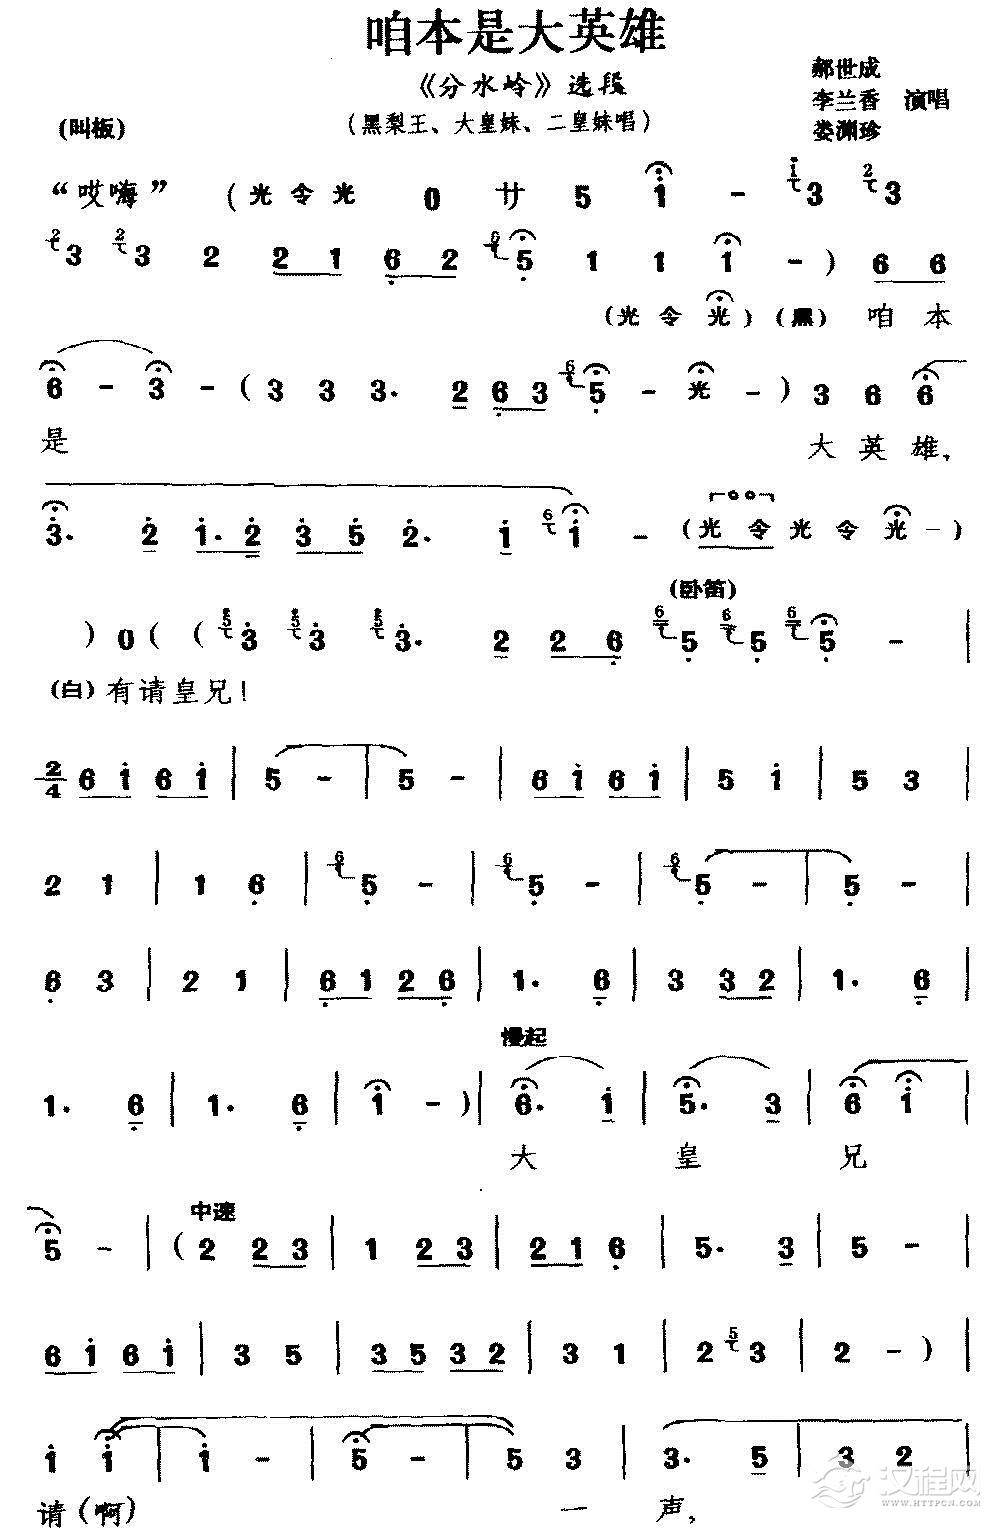 咱本是大英雄
《分水岭》选段
郝世成
李兰香 演唱
娄渊珍
(黑梨王、大皇妹、二皇妹唱)
(叫板)
“哎嗨” (光令光 0 サ 5 1 - 3 3
3 3 2 2 1 6 2 5 1 1 1 - ) 6 6
(光令光) (黑) 咱 本
6 - 3 - ( 3 3 3. 2 6 3 5 - 光 - ) 3 6 6
是 大英雄、
3. 2 1. 2 3 5 2. 1 1 - (光令光令光 - )
(卧笛)
) 0 ( ( 3 3 3. 2 2 6 5 5 5 - |
(白) 有请皇兄!
2/4 6 1 6 1 | 5 - | 5 - | 6 1 6 1 | 5 1 | 5 3 |
2 1 | 1 6 | 5 - | 5 - | 5 - | 5 - |
6 3 | 2 1 | 6 1 2 6 | 1. 6 | 3 3 2 | 1. 6 |
慢起
1. 6 | 1. 6 | 1 - ) | 6. 1 | 5. 3 | 6 1 |
大 皇 兄
中速
5 - | ( 2 2 3 | 1 2 3 | 2 1 6 | 5. 3 | 5 - |
6 1 6 1 | 3 5 | 3 5 3 2 | 3 1 | 2 3 | 2 - ) |
1 1 | 1 - | 5 - | 5 3 | 3. 5 | 3 2
请(啊) 一 声,
汉程网
WWW.HTTPCN.COM